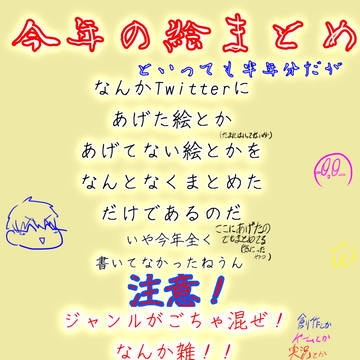 今年の絵まとめ
といっても半年分だが
なんかTwitterに
あげた絵とか
あげてない絵とかを
なんとなくまとめた
だけであるのだ
ここにあげたの
でもまとめてる
いや今年全く
書いてなかったねうん
注意！
ジャンルがごちゃ混ぜ！
なんか雑！！
創作とか
ゲームとか
実況とか